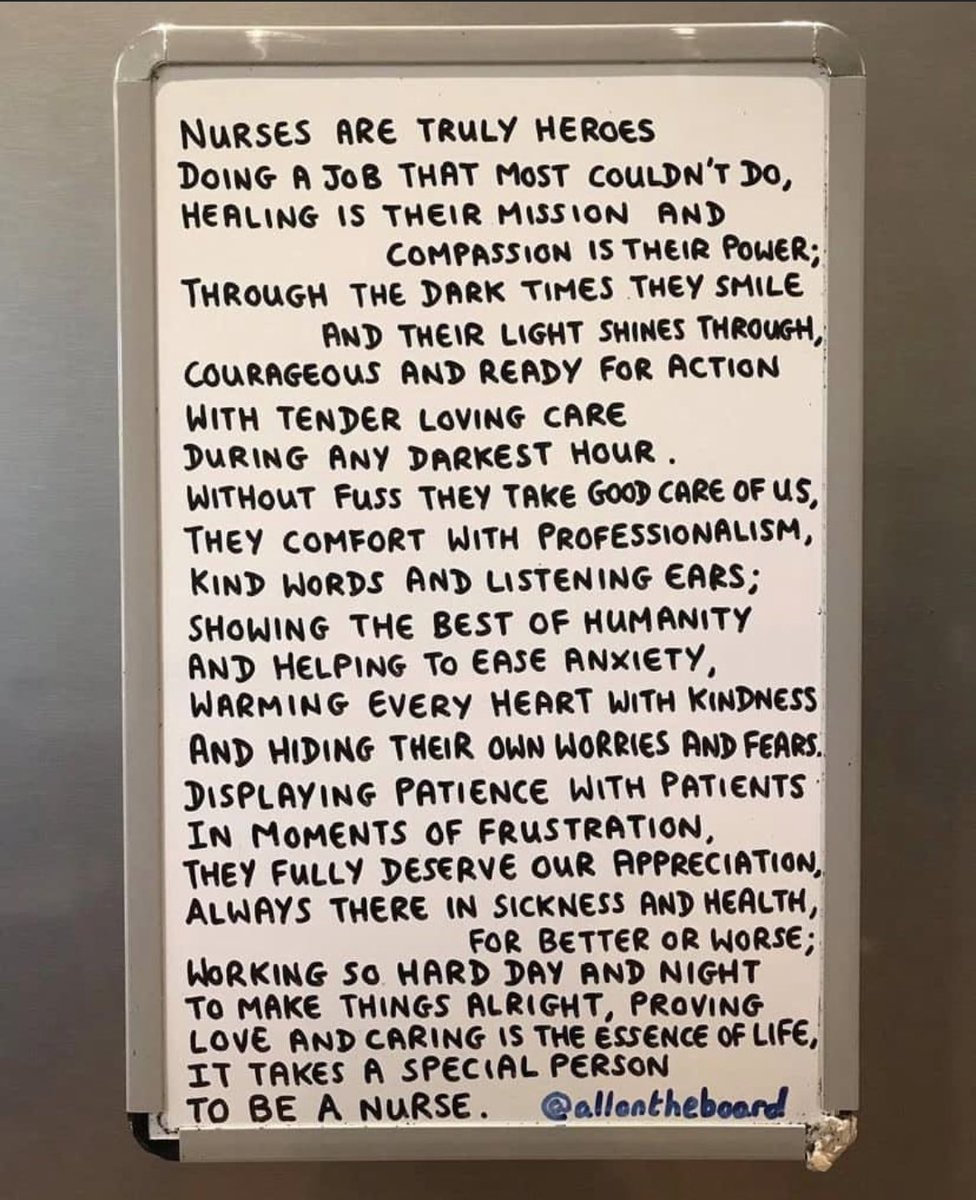 NURSES ARE TRULY HEROES
DOING A JOB THAT MOST COULDN'T DO,
HEALING IS THEIR MISSION AND
COMPASSION IS THEIR POWER;
THROUGH THE DARK TIMES THEY SMILE
AND THEIR LIGHT SHINES THROUGH,
COURAGEOUS AND READY FOR ACTION
WITH TENDER LOVING CARE
DURING ANY DARKEST HOUR.
WITHOUT FUSS THEY TAKE GOOD CARE OF US,
THEY COMFORT WITH PROFESSIONALISM,
KIND WORDS AND LISTENING EARS;
SHOWING THE BEST OF HUMANITY
AND HELPING TO EASE ANXIETY,
WARMING EVERY HEART WITH KINDNESS
AND HIDING THEIR OWN WORRIES AND FEARS.
DISPLAYING PATIENCE WITH PATIENTS
IN MOMENTS OF FRUSTRATION,
THEY FULLY DESERVE OUR APPRECIATION,
ALWAYS THERE IN SICKNESS AND HEALTH,
FOR BETTER OR WORSE;
WORKING SO HARD DAY AND NIGHT
TO MAKE THINGS ALRIGHT, PROVING
LOVE AND CARING IS THE ESSENCE OF LIFE,
IT TAKES A SPECIAL PERSON
TO BE A NURSE. @allontheboard